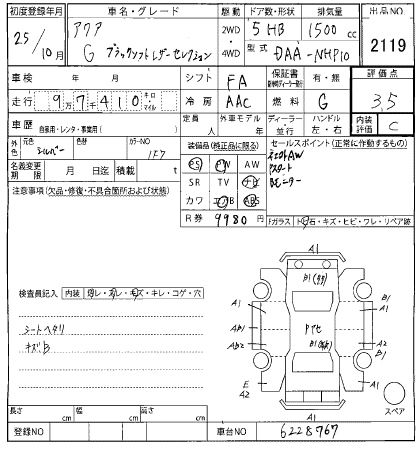 初度登録年月 車名・グレード 駆動 ドア数・形状 排気量 出品NO
25/10月 アクア 2WD・4WD 5 HB 1500cc 2119
G ブラックソフトレザーセレクション 型式 DAA-NHP10
車検 年 月 シフト FA 保証書 有・無 評価点
走行 9万7千410 キロ・マイル 冷房 AAC 燃料 G 3.5
車歴 自家用・レンタ・事業用( ) 定員 人 外車モデル 年 ディーラー・並行 ハンドル 左・右 内装評価 C
外色 元色 シルバー 色替 カラーNO 1F7
装備品(純正品に限る) セールスポイント(正常に作動するもの)
名義変更期限 月 日迄 積載 t
PS PW AW
SR TV ナビ
カワ エアB ABS
社外AW
Pスタート
Bモニター
注意事項(欠品・修復・不具合箇所および状態)
R券 9980円
Fガラス トビ石・キズ・ヒビ・ワレ・リペア跡
検査員記入 内装 ヨゴレ・スレ・キズ・キレ・コゲ・穴
シートヘタリ
キズB
A1
A1 B1
AB1 A1
AB2 A2
B1
E A2 A1
A1
スペア
長さ cm 幅 cm 高さ cm
登録NO 車台NO 6228767